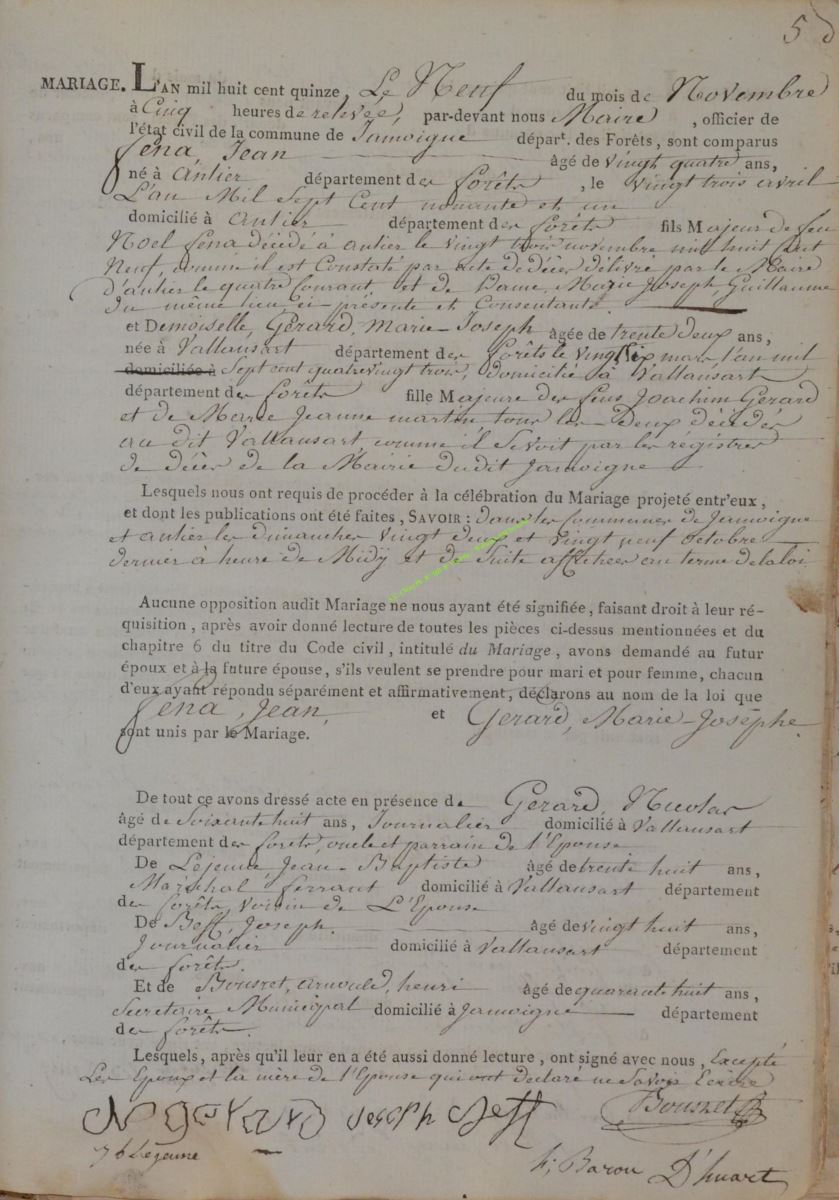 5
MARIAGE. L'AN mil huit cent quinze, Le Neuf du mois de Novembre
à Cinq heures de relevée, par-devant nous Maire, officier de
l'état civil de la commune de Jamoigne départ. des Forêts, sont comparus
Fena, Jean âgé de vingt quatre ans,
né à Anlier département des forêts, le vingt trois avril
L'an Mil Sept Cent nonante et un
domicilié à Anlier département des forêts fils Majeur de feu
Noel fena décédé à anlier le vingt trois novembre mil huit Cent
Neuf, comme il est Constaté par acte de décès délivré par le Maire
d'anlier le quatre Courant, et de Dame, Marie Joseph, Guillaume
du même lieu, ci-présente et Consentante.
et Demoiselle, Gérard, Marie-Joseph âgée de trente deux ans,
née à Vallansart département des forêts le vingt six mars l'an mil
domiciliée à Sept cent quatre vingt trois, domicilié à Vallansart
département des forêts fille Majeure des feus Joachim Gerard
et de Marie Jeanne martin tous les Deux décédés
au dit Vallansart comme il se voit par les registres
de décès de la Mairie dudit Jamoigne
Lesquels nous ont requis de procéder à la célébration du Mariage projeté entr'eux,
et dont les publications ont été faites, SAVOIR : dans les Communes de Jamoigne
et anlier les dimanches vingt deux et vingt neuf octobre
dernier à heure de Midy et de Suite affichées au terme de la loi
Aucune opposition audit Mariage ne nous ayant été signifiée, faisant droit à leur ré-
quisition, après avoir donné lecture de toutes les pièces ci-dessus mentionnées et du
chapitre 6 du titre du Code civil, intitulé du Mariage, avons demandé au futur
époux et à la future épouse, s'ils veulent se prendre pour mari et pour femme, chacun
d'eux ayant répondu séparément et affirmativement, déclarons au nom de la loi que
Fena, Jean, et Gerard, Marie-Josèphe
sont unis par le Mariage.
De tout ce avons dressé acte en présence de Gerard, Nicolas
âgé de Soixante huit ans, Journalier domicilié à Vallansart
département des forêts, oncle et parrain de l'Epouse
De Lejeune Jean-Baptiste âgé de trente huit ans,
Maréchal ferrant domicilié à Vallansart département
des forêts, voisin de L'Epouse
De Beff, Joseph. âgé de vingt huit ans,
Journalier domicilié à Vallansart département
des forêts.
Et de Bousret, arnould, henri âgé de quarante huit ans,
Secretaire Municipal domicilié à Jamoigne département
des forêts.
Lesquels, après qu'il leur en a été aussi donné lecture, ont signé avec nous, Excepté
Les Epoux et la mère de l'Epouse qui ont déclaré ne Savoir Ecrire
N gerard Joseph Jeff Bousret
J b Lejeune
h; Baron D'huart